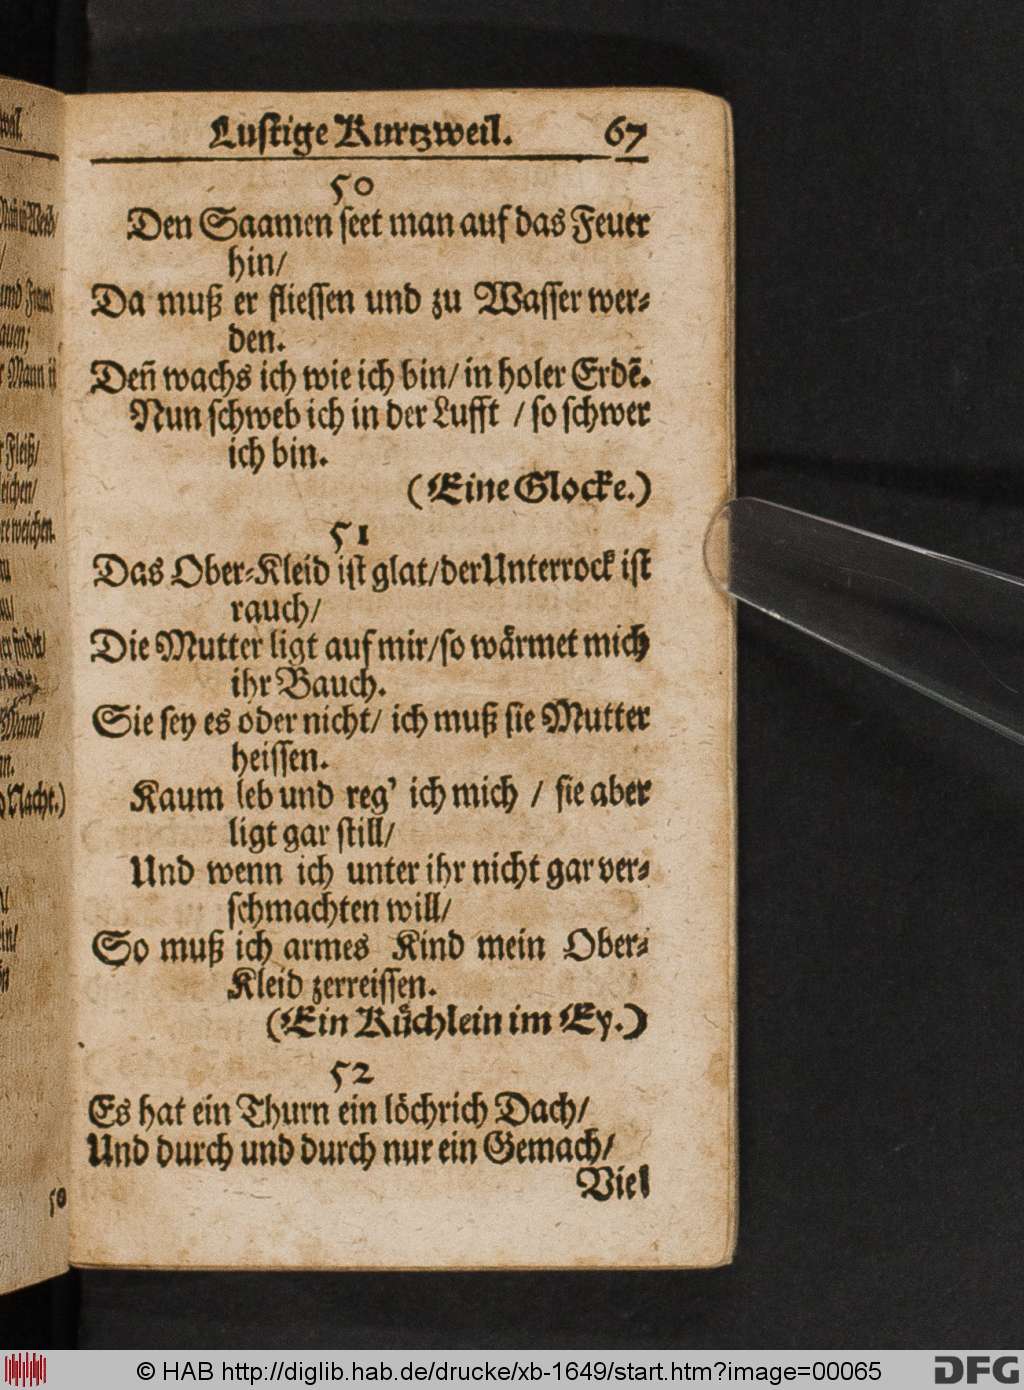 Lustige Kurtzweil. 67
50
Den Saamen seet man auf das Feuer
hin/
Da muß er fliessen und zu Wasser wer⸗
den.
Deñ wachs ich wie ich bin/ in holer Erdẽ.
Nun schweb ich in der Lufft / so schwer
ich bin.
(Eine Glocke.)
51
Das Ober⸗Kleid ist glat/der Unterrock ist
rauch/
Die Mutter ligt auf mir/so wärmet mich
ihr Bauch.
Sie sey es oder nicht/ ich muß sie Mutter
heissen.
Kaum leb und reg' ich mich / sie aber
ligt gar still/
Und wenn ich unter ihr nicht gar ver⸗
schmachten will/
So muß ich armes Kind mein Ober⸗
Kleid zerreissen.
(Ein Küchlein im Ey.)
52
Es hat ein Thurn ein löchrich Dach/
Und durch und durch nur ein Gemach/
Viel
50
© HAB http://diglib.hab.de/drucke/xb-1649/start.htm?image=00065
DFG